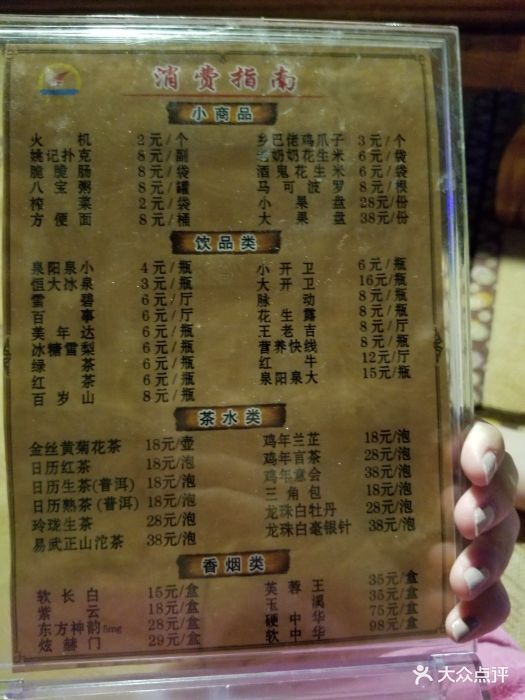 消费指南
小商品
火机 2元/个 乡巴佬鸡爪子 3元/个
姚记扑克 8元/副 老奶奶花生米 6元/袋
脆脆肠 8元/袋 酒鬼花生米 6元/袋
八宝粥 8元/罐 马可波罗 8元/根
榨菜 2元/袋 小果盘 28元/份
方便面 8元/桶 大果盘 38元/份
饮品类
泉阳泉小 4元/瓶 小开卫 6元/瓶
恒大冰泉 3元/瓶 大开卫 16元/瓶
雪碧 6元/厅 脉动 8元/瓶
百事 6元/厅 花生露 8元/瓶
芙年达 6元/瓶 王老吉 8元/厅
冰糖雪梨 6元/瓶 营养快线 8元/瓶
绿茶 6元/瓶 红牛 12元/厅
红茶 6元/瓶 泉阳泉大 15元/瓶
百岁山 8元/瓶
茶水类
金丝黄菊花茶 18元/壶 鸡年兰芷 18元/泡
日历红茶 18元/泡 鸡年言茶 28元/泡
日历生茶(普洱) 18元/泡 鸡年意会 38元/泡
日历熟茶(普洱) 18元/泡 三角包 18元/泡
玲珑生茶 28元/泡 龙珠白牡丹 28元/泡
易武正山沱茶 38元/泡 龙珠白毫银针 38元/泡
香烟类
软长白 15元/盒 芙蓉王 35元/盒
紫云 18元/盒 玉溪 35元/盒
东方神韵5mg 28元/盒 硬中华 75元/盒
炫赫门 29元/盒 软中华 98元/盒
大众点评